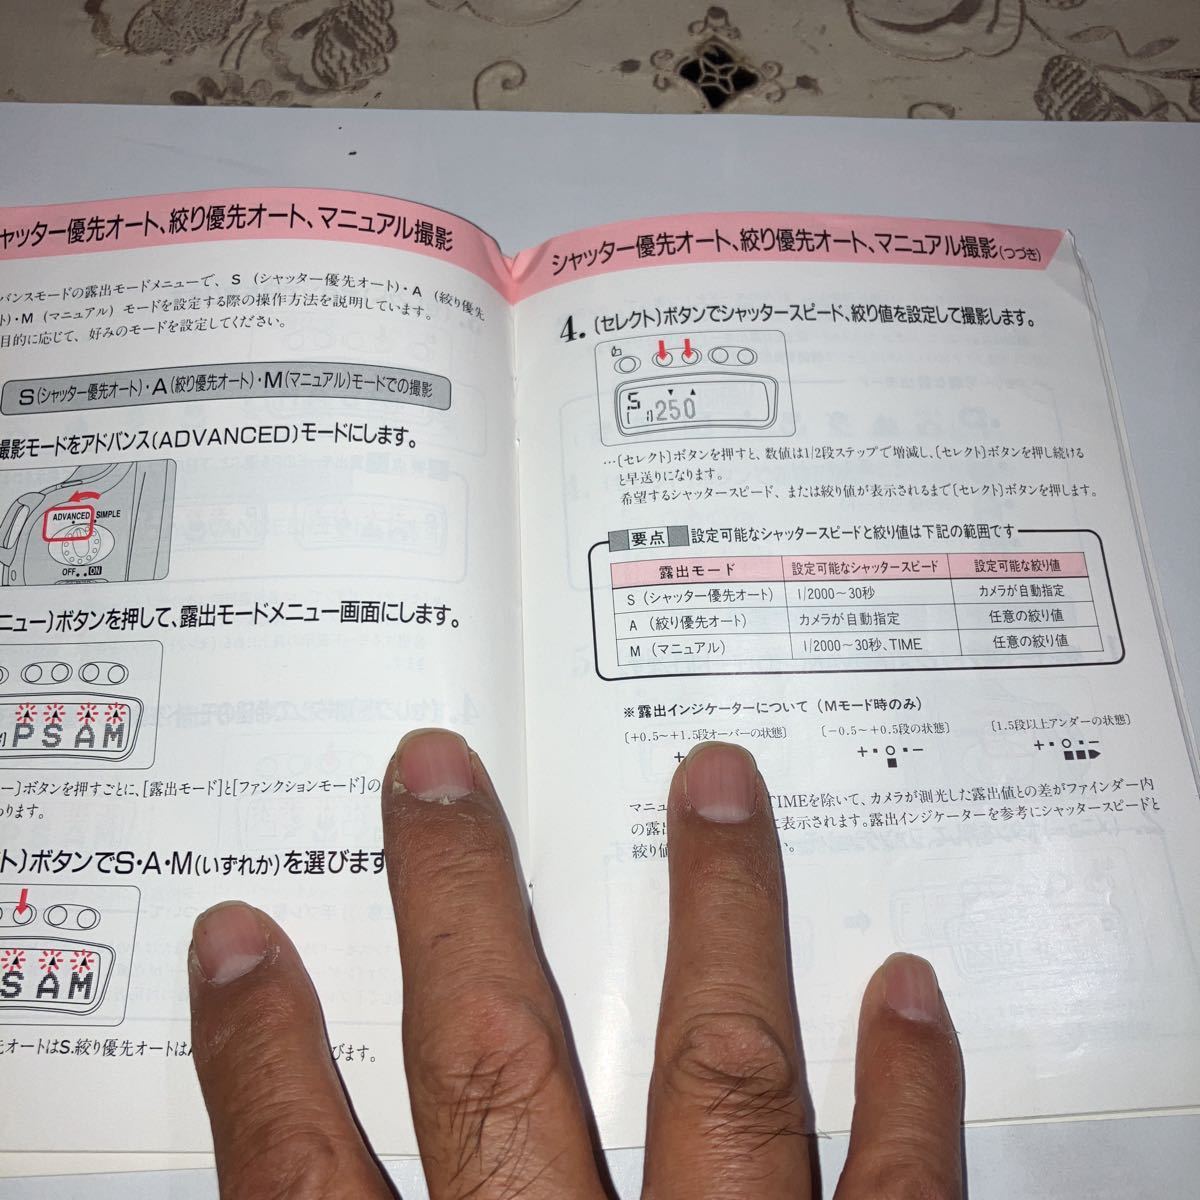 ャッター優先オート、絞り優先オート、マニュアル撮影
バンスモードの露出モードメニューで、S (シャッター優先オート)・A (絞り優先
ト)・M (マニュアル) モードを設定する際の操作方法を説明しています。
目的に応じて、好みのモードを設定してください。
S(シャッター優先オート)・A(絞り優先オート)・M(マニュアル)モードでの撮影
撮影モードをアドバンス(ADVANCED)モードにします。
ADVANCED SIMPLE
OFF ON
ニュー)ボタンを押して、露出モードメニュー画面にします。
P S A M
ー]ボタンを押すごとに、[露出モード]と[ファンクションモード]の
わります。
ト)ボタンでS・A・M(いずれか)を選びます
S A M
先オートはS.絞り優先オートは
びます。
シャッター優先オート、絞り優先オート、マニュアル撮影(つづき)
4. (セレクト)ボタンでシャッタースピード、絞り値を設定して撮影します。
S 250
…〔セレクト〕ボタンを押すと、数値は1/2段ステップで増減し、〔セレクト〕ボタンを押し続ける
と早送りになります。
希望するシャッタースピード、または絞り値が表示されるまで〔セレクト〕ボタンを押します。
要点 設定可能なシャッタースピードと絞り値は下記の範囲です
露出モード 設定可能なシャッタースピード 設定可能な絞り値
S (シャッター優先オート) 1/2000～30秒 カメラが自動指定
A (絞り優先オート) カメラが自動指定 任意の絞り値
M (マニュアル) 1/2000～30秒、TIME 任意の絞り値
※露出インジケーターについて (Mモード時のみ)
〔+0.5～+1.5段オーバーの状態〕 〔-0.5～+0.5段の状態〕 〔1.5段以上アンダーの状態〕
マニュ TIMEを除いて、カメラが測光した露出値との差がファインダー内
の露出 に表示されます。露出インジケーターを参考にシャッタースピードと
絞り値 い。